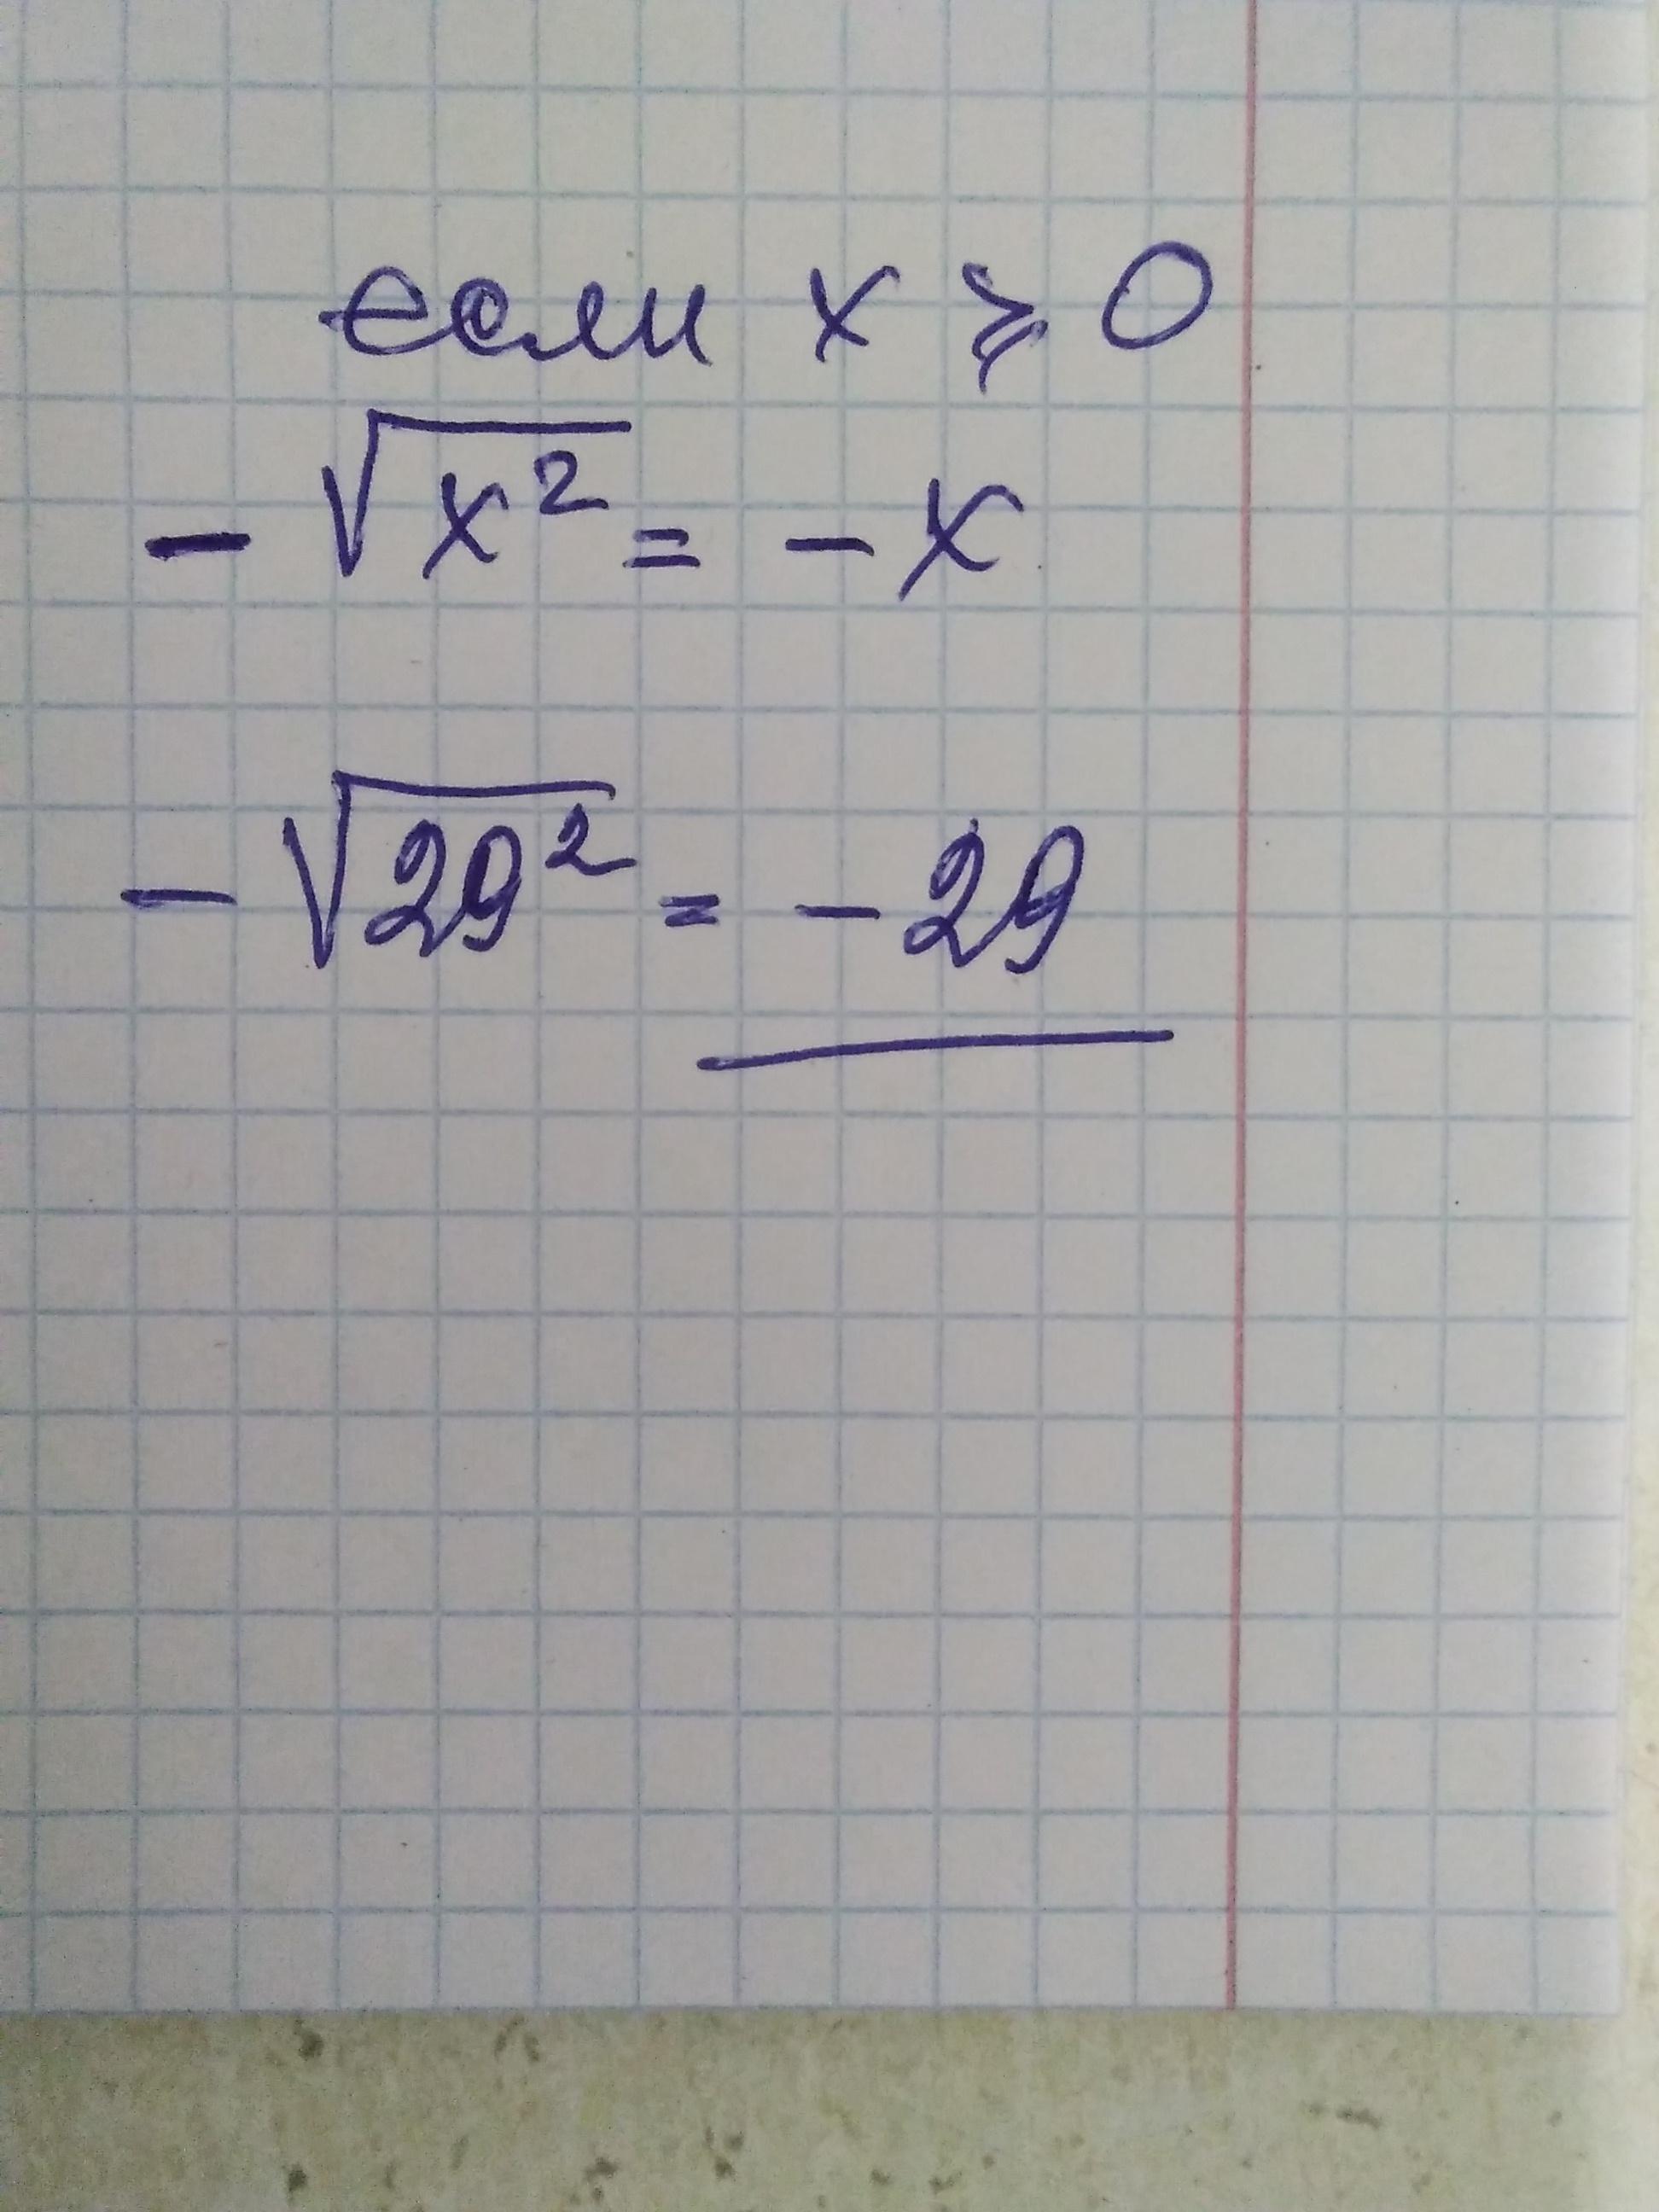 если x ⩾ 0
- √x² = - x
- √29² = - 29